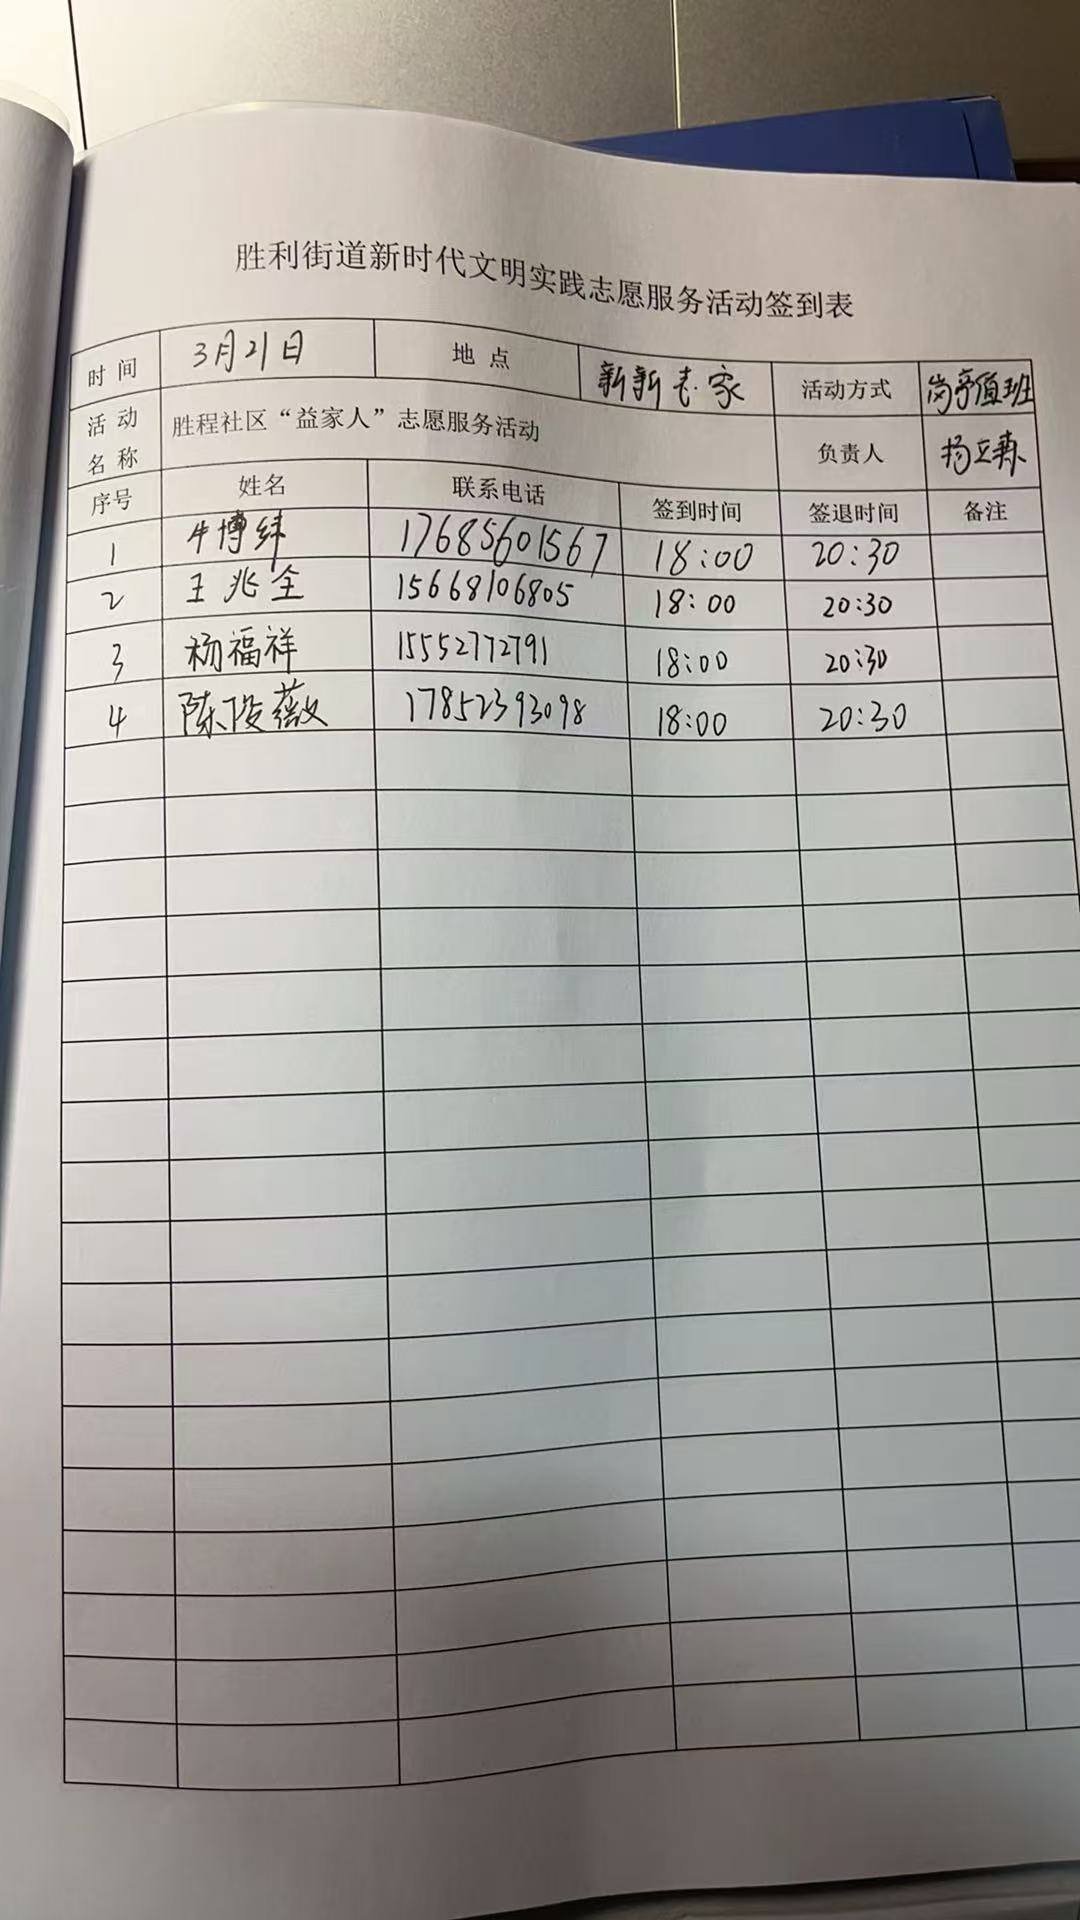 胜利街道新时代文明实践志愿服务活动签到表
时间 3月21日 地点 新新志家 活动方式 岗亭值班
活动名称 胜程社区“益家人”志愿服务活动 负责人 杨立森
序号 姓名 联系电话 签到时间 签退时间 备注
1 牛博纬 17685601567 18:00 20:30
2 王兆全 15668106805 18:00 20:30
3 杨福祥 15552772791 18:00 20:30
4 陈俊薇 17852393098 18:00 20:30